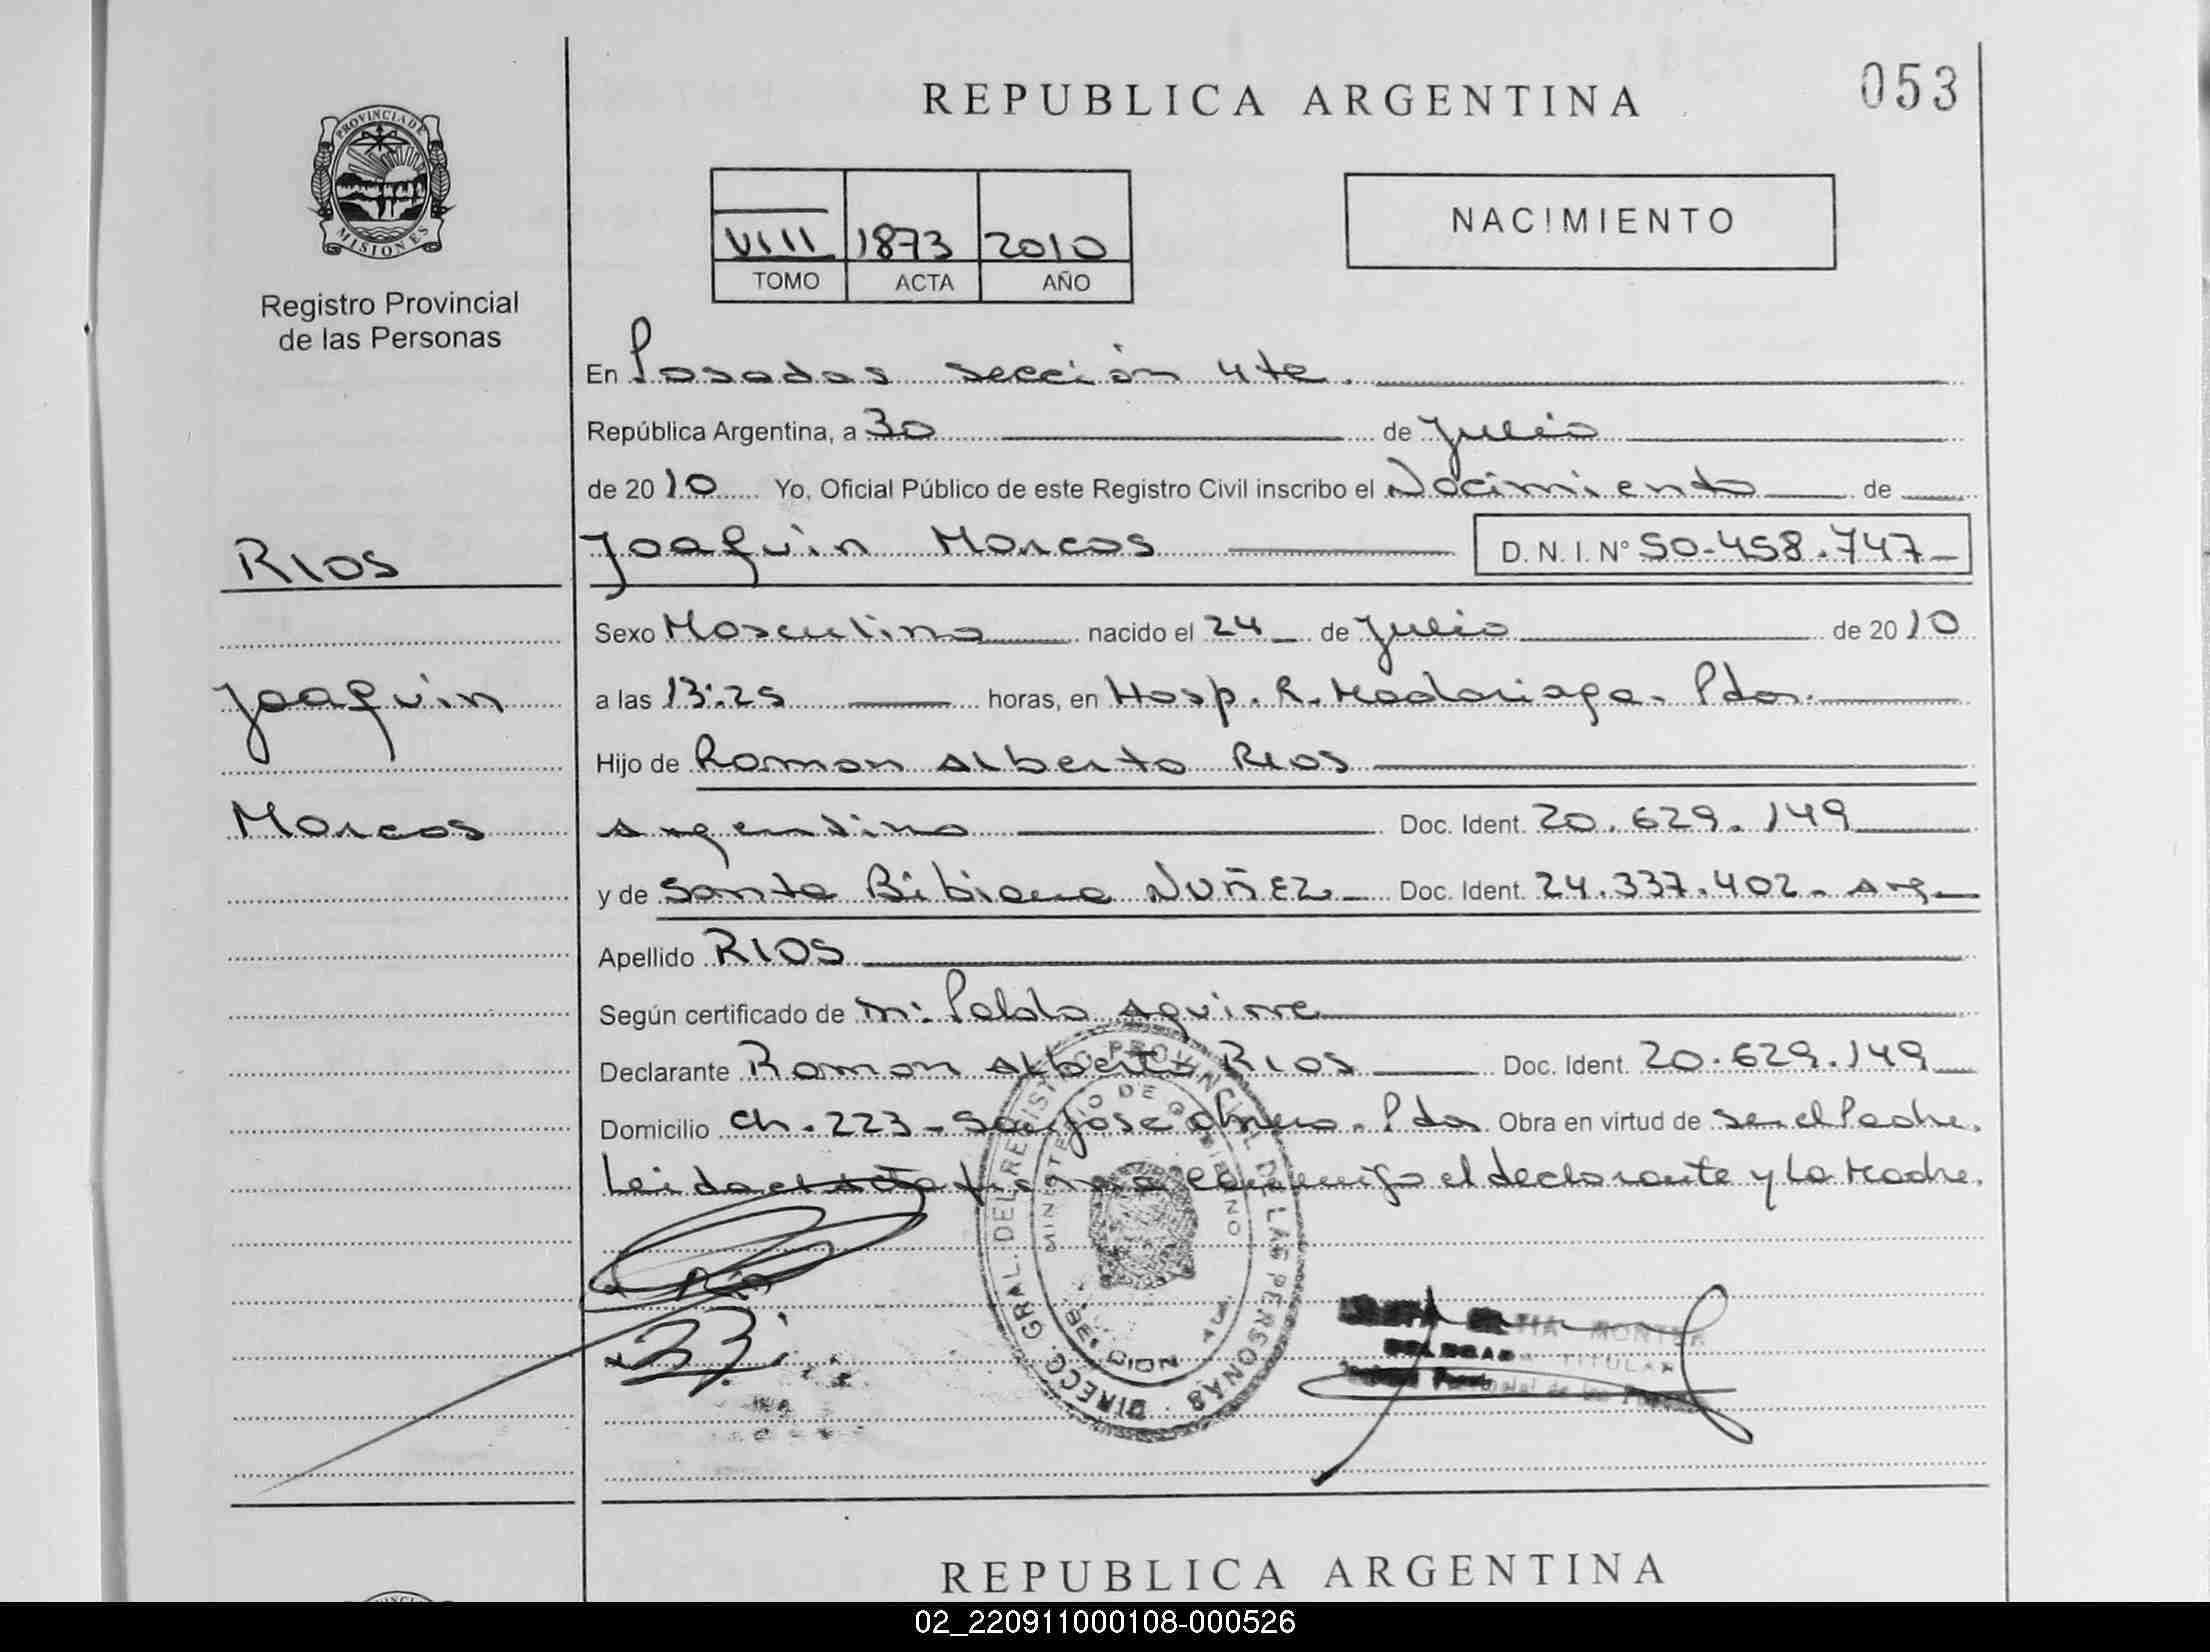 053
REPUBLICA ARGENTINA
PROVINCIA DE
MISIONES
Registro Provincial
de las Personas
NACIMIENTO
VIII 1873 2010
TOMO ACTA AÑO
En Posadas sección 4ta.
República Argentina, a 30 de Julio
de 2010 Yo, Oficial Público de este Registro Civil inscribo el Nacimiento de
RIOS
Joaquin Marcos D. N. I. N° 50.458.747
Sexo Masculino nacido el 24 de Julio de 2010
Joaquin
a las 13:25 horas, en Hosp. R. Madariaga. Pdas.
Hijo de Ramon Alberto RIOS
Marcos
Argentino Doc. Ident. 20.629.149
y de Santa Bibiana NUÑEZ Doc. Ident. 24.337.402 - Arg.
Apellido RIOS
Según certificado de Aguirre
Declarante Ramon Alberto RIOS Doc. Ident. 20.629.149
Domicilio Ch. 223 - San Jose Obrero. Pdas Obra en virtud de ser el Padre.
Leida el Acta firma conmigo el declarante y la Madre.
DIRECC. GRAL. DEL REGISTRO PROVINCIAL DE LAS PERSONAS
MINISTERIO DE GOBIERNO
TITULAR
REPUBLICA ARGENTINA
02_220911000108-000526